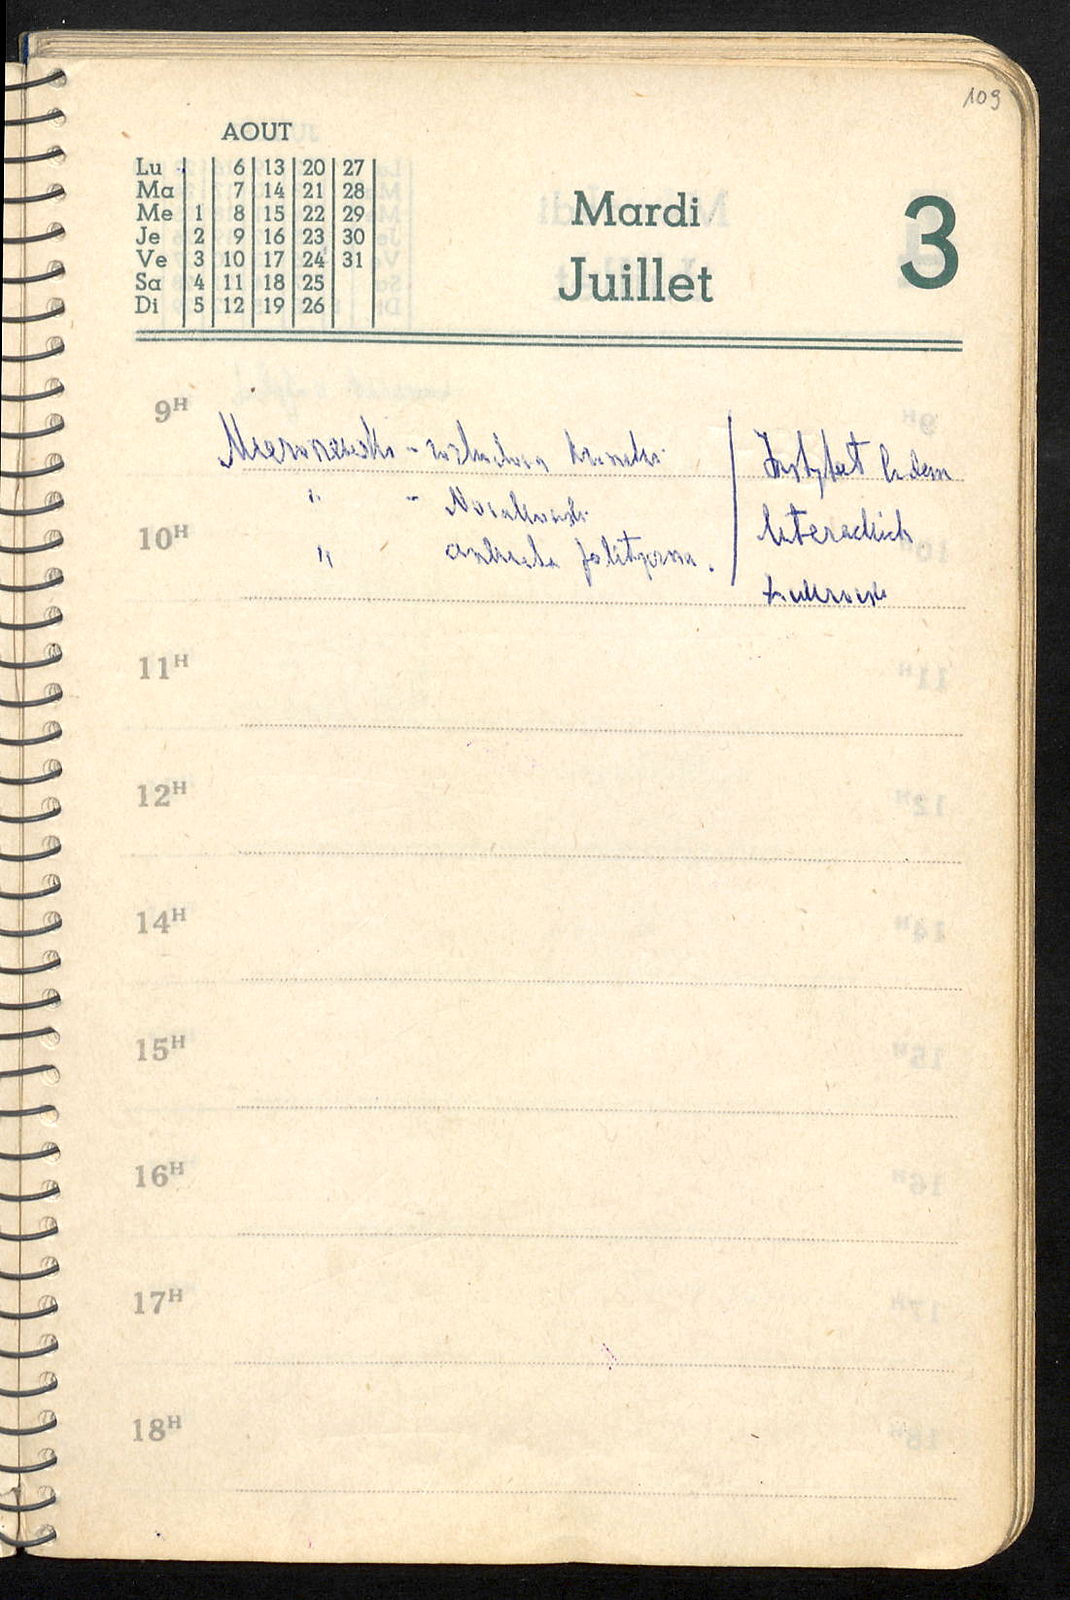 109
AOUT
Lu 6 13 20 27
Ma 7 14 21 28
Me 1 8 15 22 29
Je 2 9 16 23 30
Ve 3 10 17 24 31
Sa 4 11 18 25
Di 5 12 19 26
Mardi 3
Juillet
9H
Mieroszewski - rozbudowa kroniki
" - Nowakowski
10H
" ankieta polityczna.
Instytut badań
literackich
11H
12H
14H
15H
16H
17H
18H